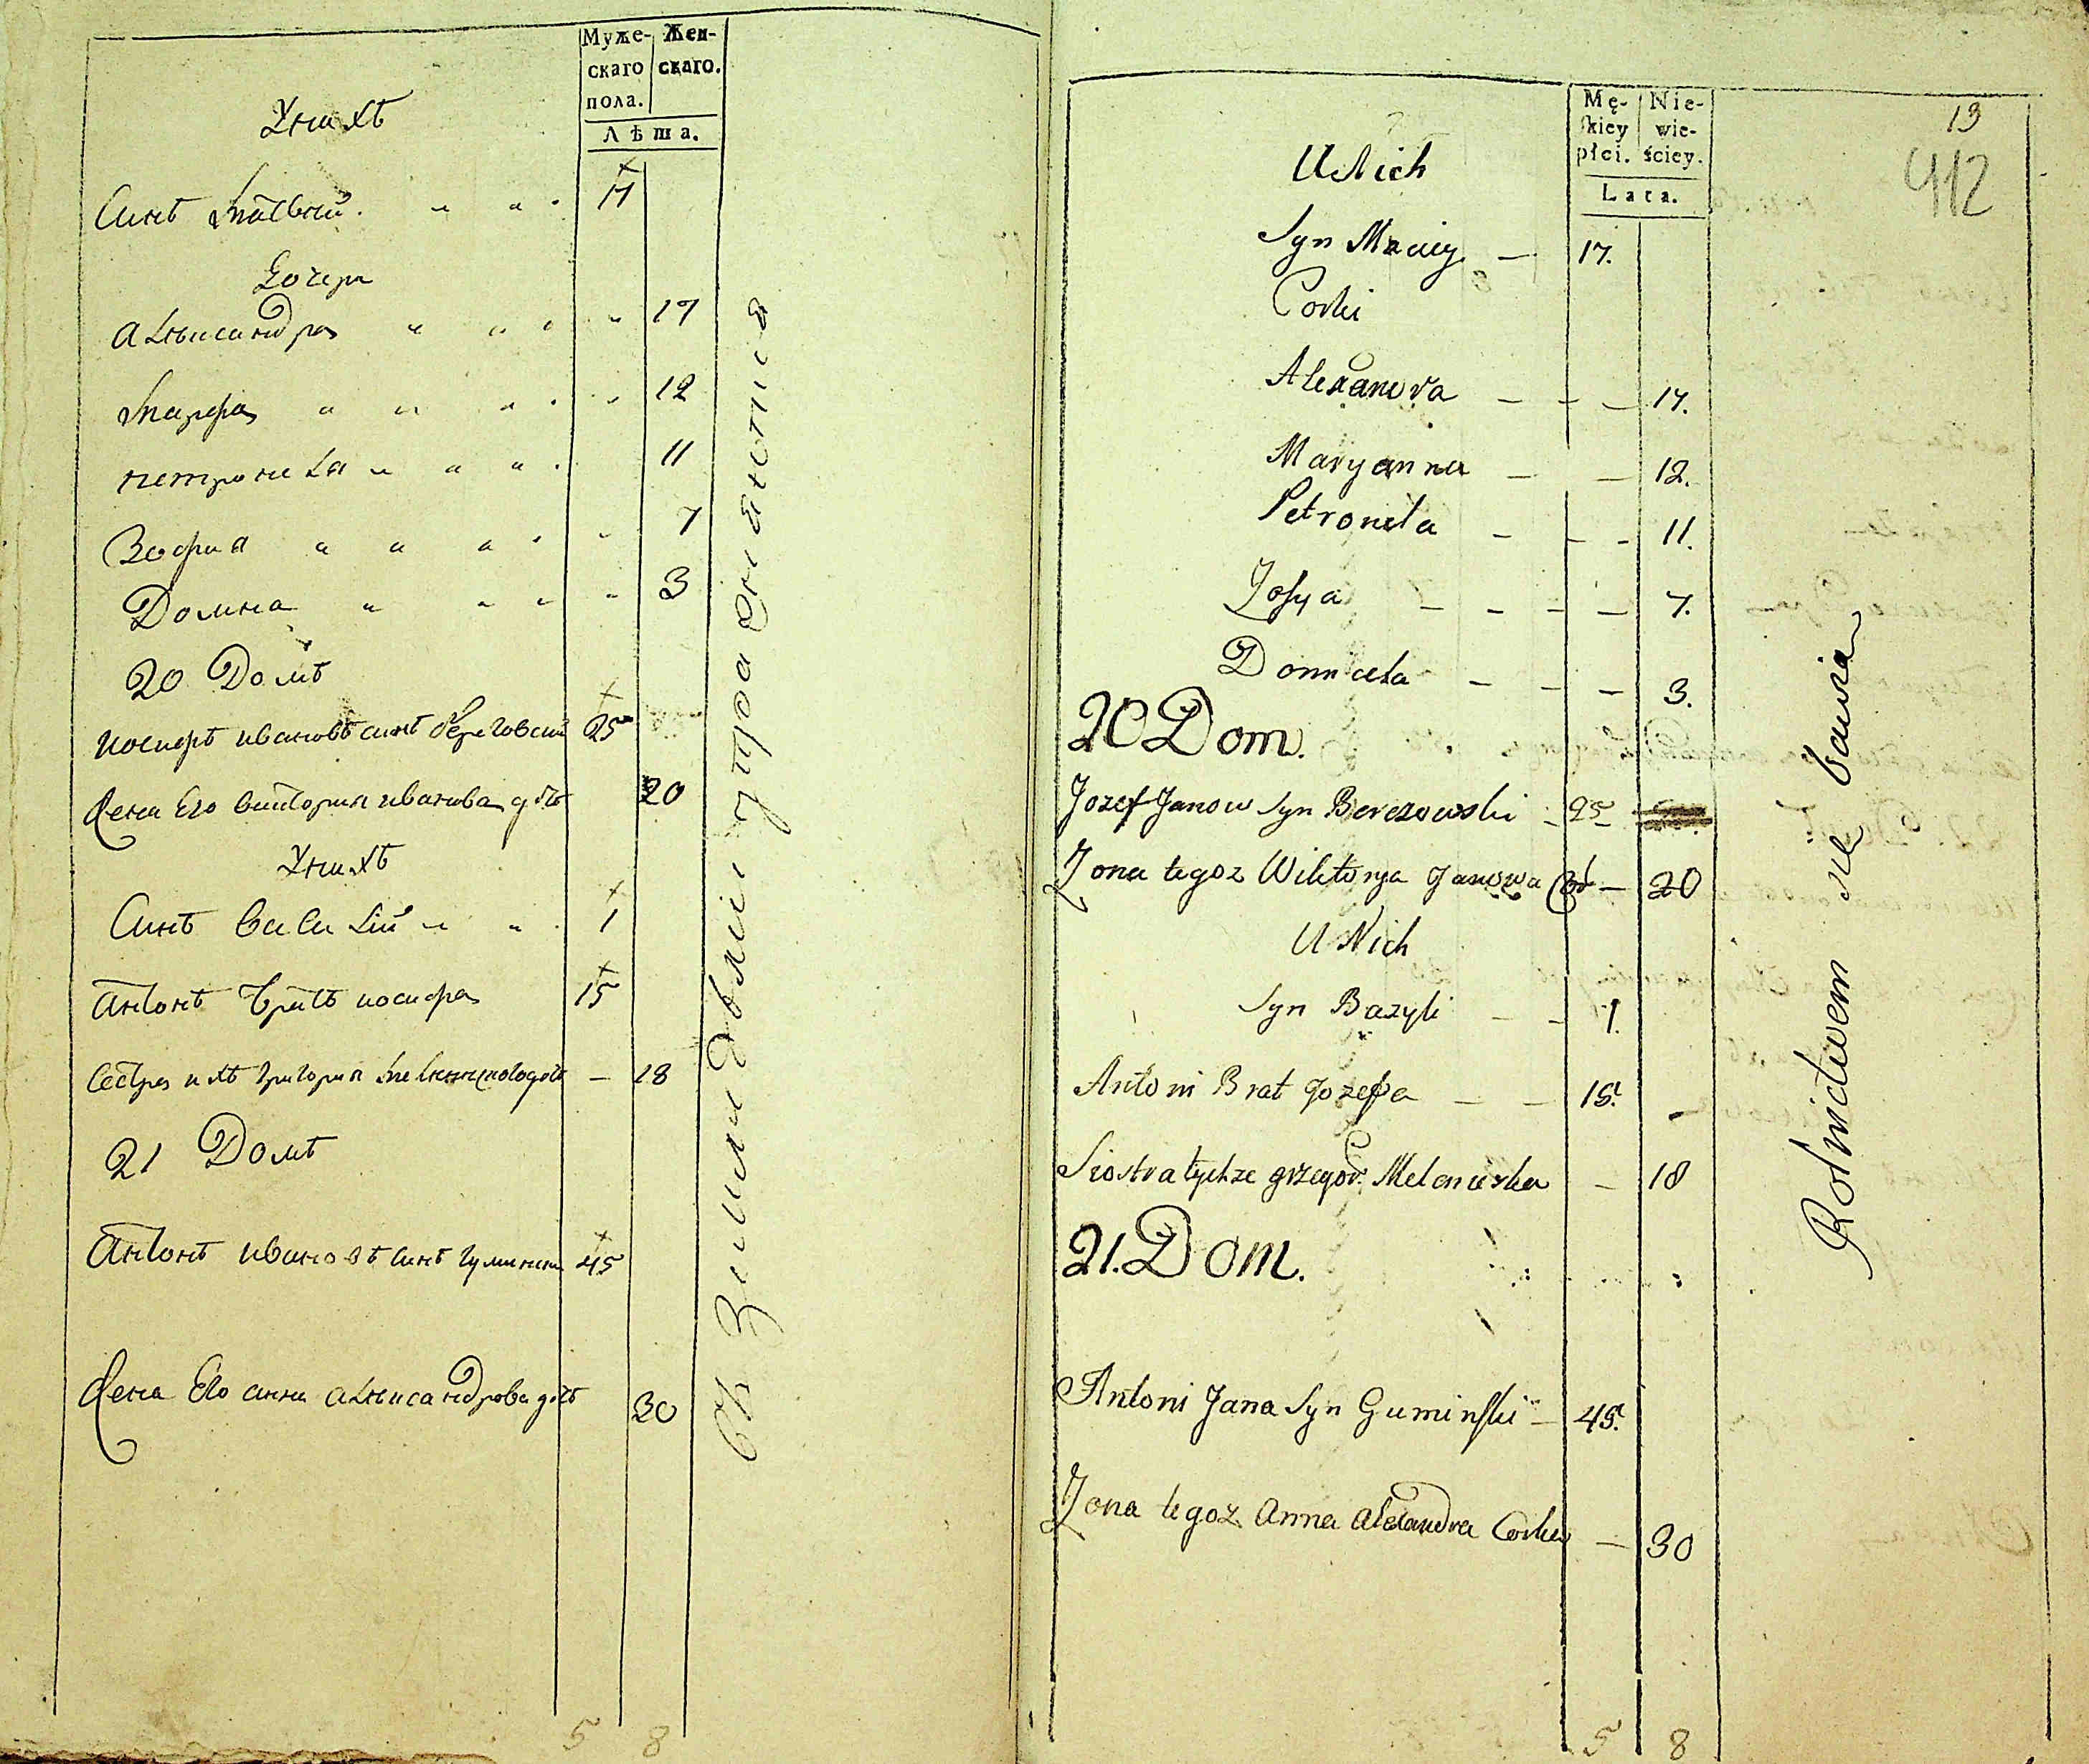 Муже-
скаго
пола.
Жен-
скаго.
Лѣта.
У нихъ
Синъ Матвий 17
Дочери
Александра 17
Марфа 12
петронела 11
Зофия 7
Домна 3
20 Домъ
иосифъ ивановъ синъ березовский 25
Жена Его виктория иванова дочь 20
У нихъ
Синъ василий 1
антонъ братъ иосифа 15
сестра ихъ григория 18
21 Домъ
антонъ ивановъ синъ гуминский 45
Жена Его анна александрова дочь 30
5 8
Mę-
skiey
płci.
Nie-
wie-
ściey.
Lata.
13
412
U Nich
Syn Maciey — 17.
Corki
Alexandra — — — 17.
Maryanna — — 12.
Petronela — — — 11.
Zofya — — — — 7.
Domicela — — — 3.
20 Dom.
Jozef Janow Syn Berezowski — 25
Zona tegoz Wiktorya Janowa Cor — 20
U Nich
Syn Bazyli — — 1.
Antoni Brat Jozefa — — 15.
Siostra tychze grzegor. Melaniewska — 18
21. Dom.
Antoni Jana Syn Guminski — 45.
Zona tegoz Anna Alexandra Corka — 30
Rolnictwem sie bawia
5 8